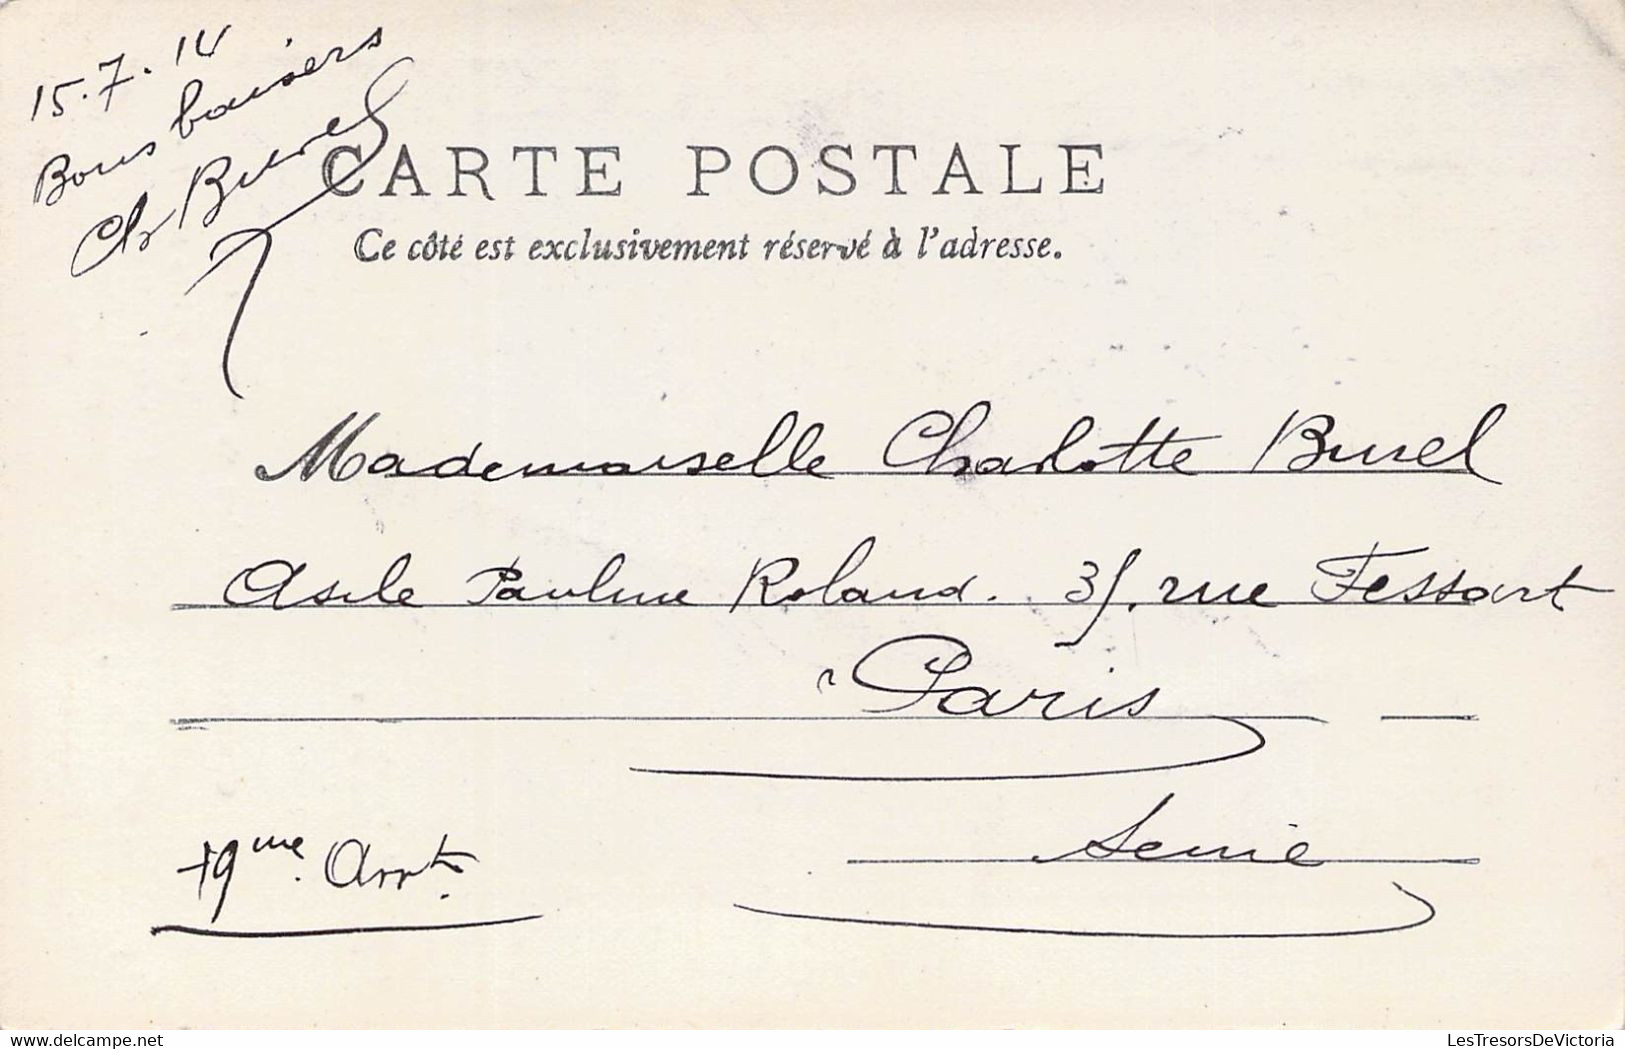 15.7.14
Bons baisers
Ch Burel
CARTE POSTALE
Ce côté est exclusivement réservé à l'adresse.
Mademoiselle Charlotte Burel
Asile Pauline Roland. 35, rue Fessart
Paris
Seine
19me. Arrt.
LesTresorsDeVictoria